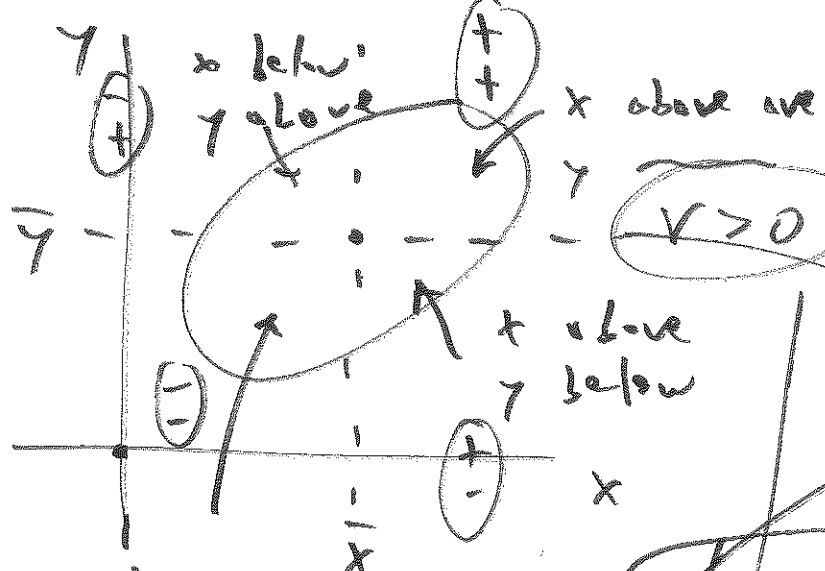 y
x below
y above
+
+
x above ave
y
-
+
ȳ
r > 0
x above
y below
-
-
+
-
x
x̄